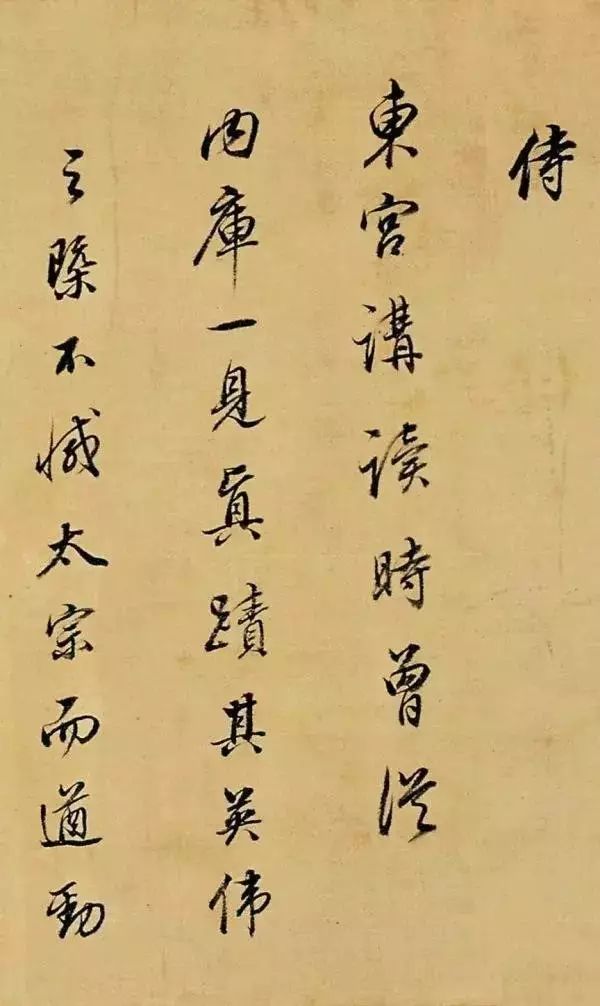 侍
東宮講讀時曾從
内庫一見真蹟其英偉
之槩不減太宗而遒勁